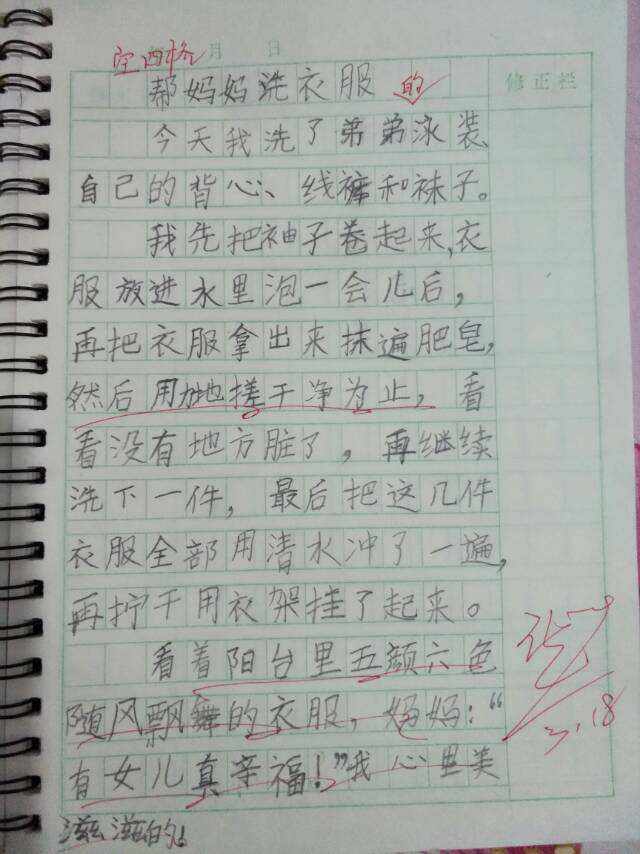 空四格 月 日
帮妈妈洗衣服 的
修正栏
今天我洗了弟弟泳装、
自己的背心、线裤和袜子。
我先把袖子卷起来,衣
服放进水里泡一会儿后,
再把衣服拿出来抹遍肥皂,
然后用力地搓干净为止,看
看没有地方脏了,再继续
洗下一件,最后把这几件
衣服全部用清水冲了一遍,
再拧干用衣架挂了起来。
看着阳台里五颜六色
随风飘舞的衣服,妈妈:“
有女儿真幸福!”我心里美
滋滋的!
3.18